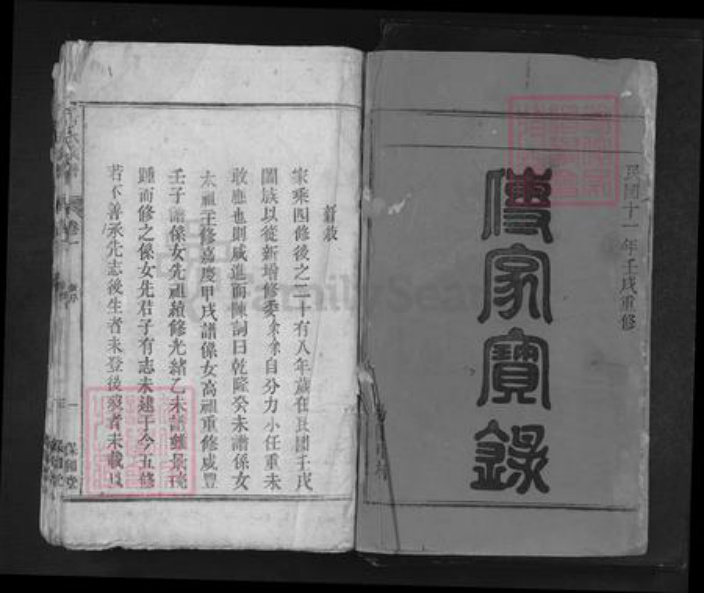 民國十一年壬戌重修
傳家寶錄
新敘
家乘四修後之二十有八年歲在民國壬戌
闔族以從新增修委余余自分力小任重未
敢應也則咸進而陳詞曰乾隆癸未譜係女
太祖手修嘉慶甲戌譜係女高祖重修咸豐
壬子譜係女先祖續修光緒乙未譜雖
踵而修之係女先君子有志未逮于今五修
若不善承先志後生者未登後歿者未載
保和堂